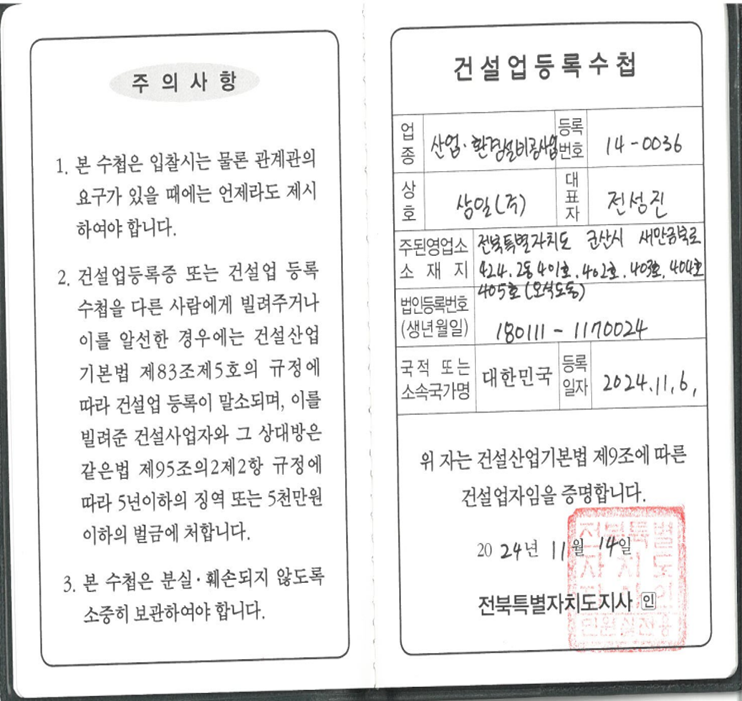 주 의 사 항
1. 본 수첩은 입찰시는 물론 관계관의
요구가 있을 때에는 언제라도 제시
하여야 합니다.
2. 건설업등록증 또는 건설업 등록
수첩을 다른 사람에게 빌려주거나
이를 알선한 경우에는 건설산업
기본법 제83조제5호의 규정에
따라 건설업 등록이 말소되며, 이를
빌려준 건설사업자와 그 상대방은
같은법 제95조의2제2항 규정에
따라 5년이하의 징역 또는 5천만원
이하의 벌금에 처합니다.
3. 본 수첩은 분실·훼손되지 않도록
소중히 보관하여야 합니다.
건설업등록수첩
업종 산업·환경설비공사업 등록번호 14-0036
상호 상일(주) 대표자 전성진
주된영업소 전북특별자치도 군산시 새만금북로
소 재 지 424. 2동 401호. 402호. 403호. 404호
405호 (오식도동)
법인등록번호
(생년월일) 180111 - 1170024
국적 또는 소속국가명 대한민국 등록일자 2024.11.6.
위 자는 건설산업기본법 제9조에 따른
건설업자임을 증명합니다.
20 24년 11월 14일
전북특별자치도지사 인
전북특별
자치도
지사인
민원실전용